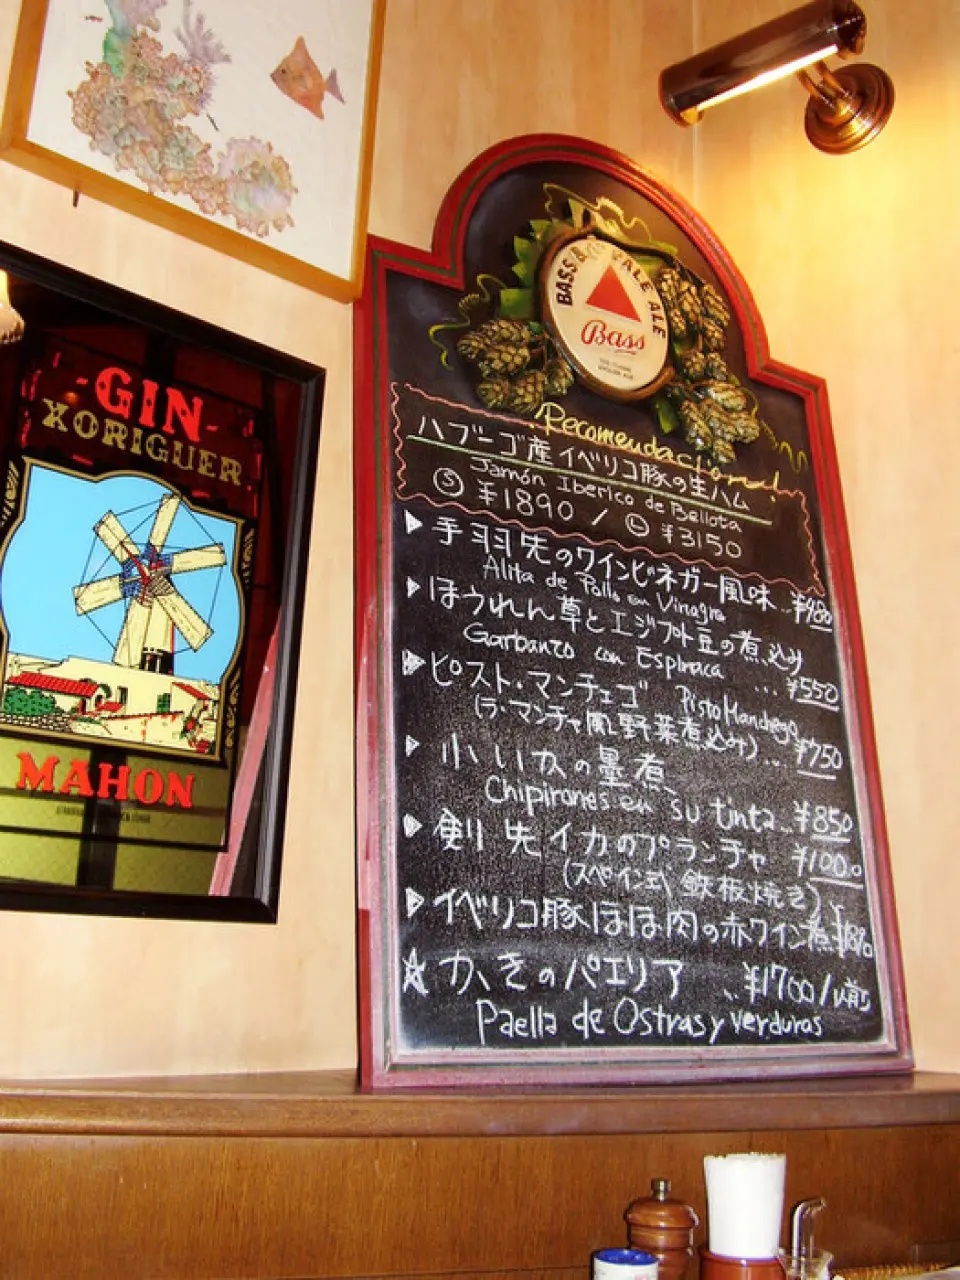 GIN
XORIGUER
MAHON
BASS & CO'S PALE ALE
Bass
Recomendaction!
ハブーゴ産イベリコ豚の生ハム
Jamón Iberico de Bellota
Ⓢ ¥1890 / Ⓛ ¥3150
▶手羽先のワインビネガー風味...¥980
Alita de Pollo en Vinagre
▶ほうれん草とエジプト豆の煮込み
Garbanzo con Espinaca ... ¥550
▶ピスト・マンチェゴ Pisto Manchego
(ラ・マンチャ風野菜煮込み)... ¥750
▶小いかの墨煮
Chipirones en su tinta... ¥850
▶剣先イカのプランチャ ¥1000
(スペイン式鉄板焼き)
▶イベリコ豚ほほ肉の赤ワイン煮 ¥1890
☆かきのパエリア ... ¥1700/1人前
Paella de Ostras y verduras